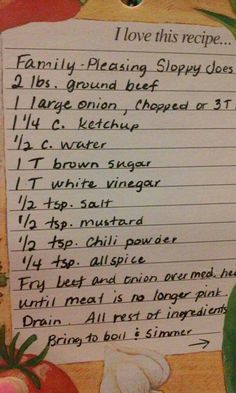 I love this recipe...
Family-Pleasing Sloppy Joes
2 lbs. ground beef
1 large onion, chopped or 3T
1 1/4 c. ketchup
1/2 c. water
1 T brown sugar
1 T white vinegar
1/2 tsp. salt
1/2 tsp. mustard
1/2 tsp. chili powder
1/4 tsp. allspice
Fry beef and onion over med. he
until meat is no longer pink.
Drain. All rest of ingredients
Bring to boil & simmer
→